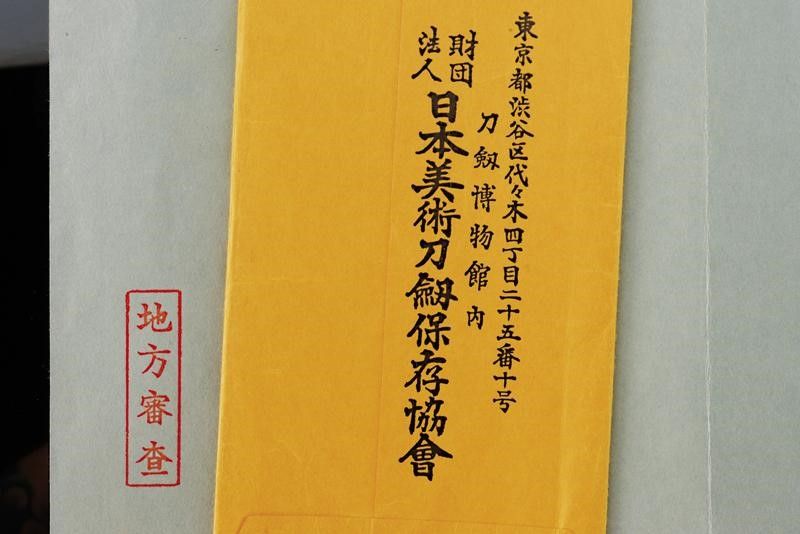 東京都渋谷区代々木四丁目二十五番十号
刀剱博物館内
財団
法人
日本美術刀剱保存協會
地方審査